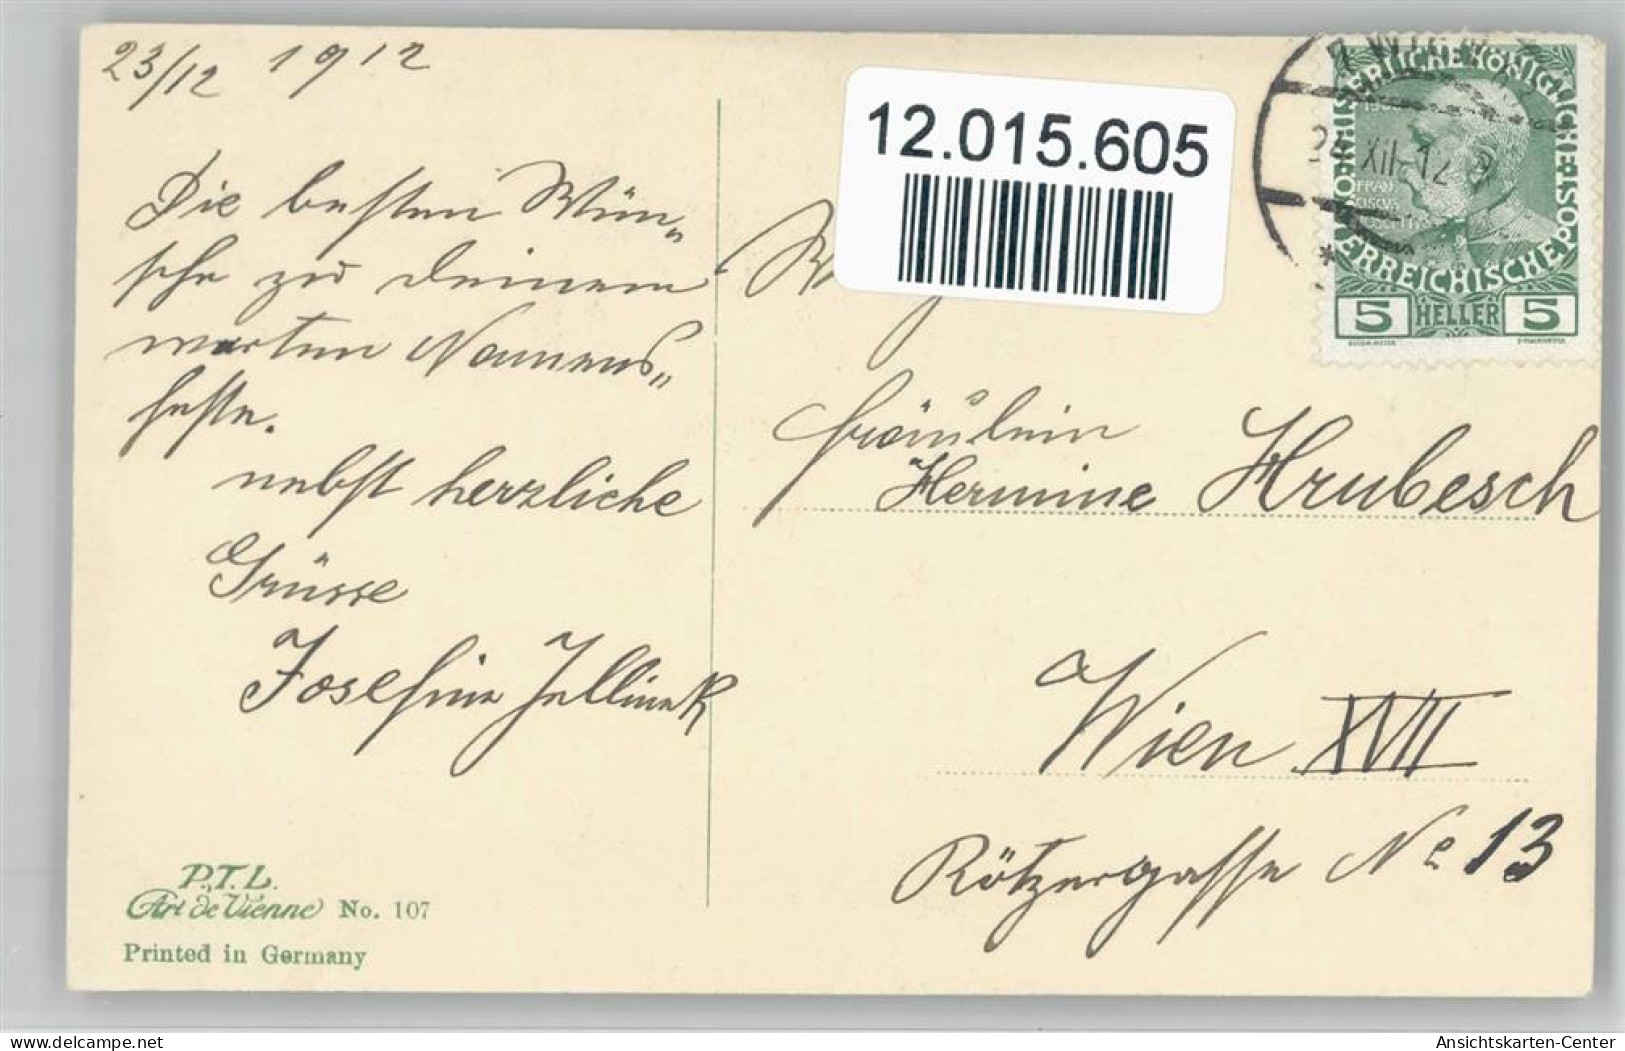 23/12 1912
Die besten Wün„
sche zu deinem
werten Namens„
feste.
nebst herzliche
Grüsse
Josefine Jellinek
P.T.L.
Art de Vienne No. 107
Printed in Germany
12.015.605
WIEN
XII 12
KAISERLICHE KÖNIGLICHE ÖSTERREICHISCHE POST
FRAN
CISCVS
5 HELLER 5
Fräulein
Hermine Hrubesch
Wien XVII
Rötzergasse No 13
delcampe.net
Ansichtskarten-Center